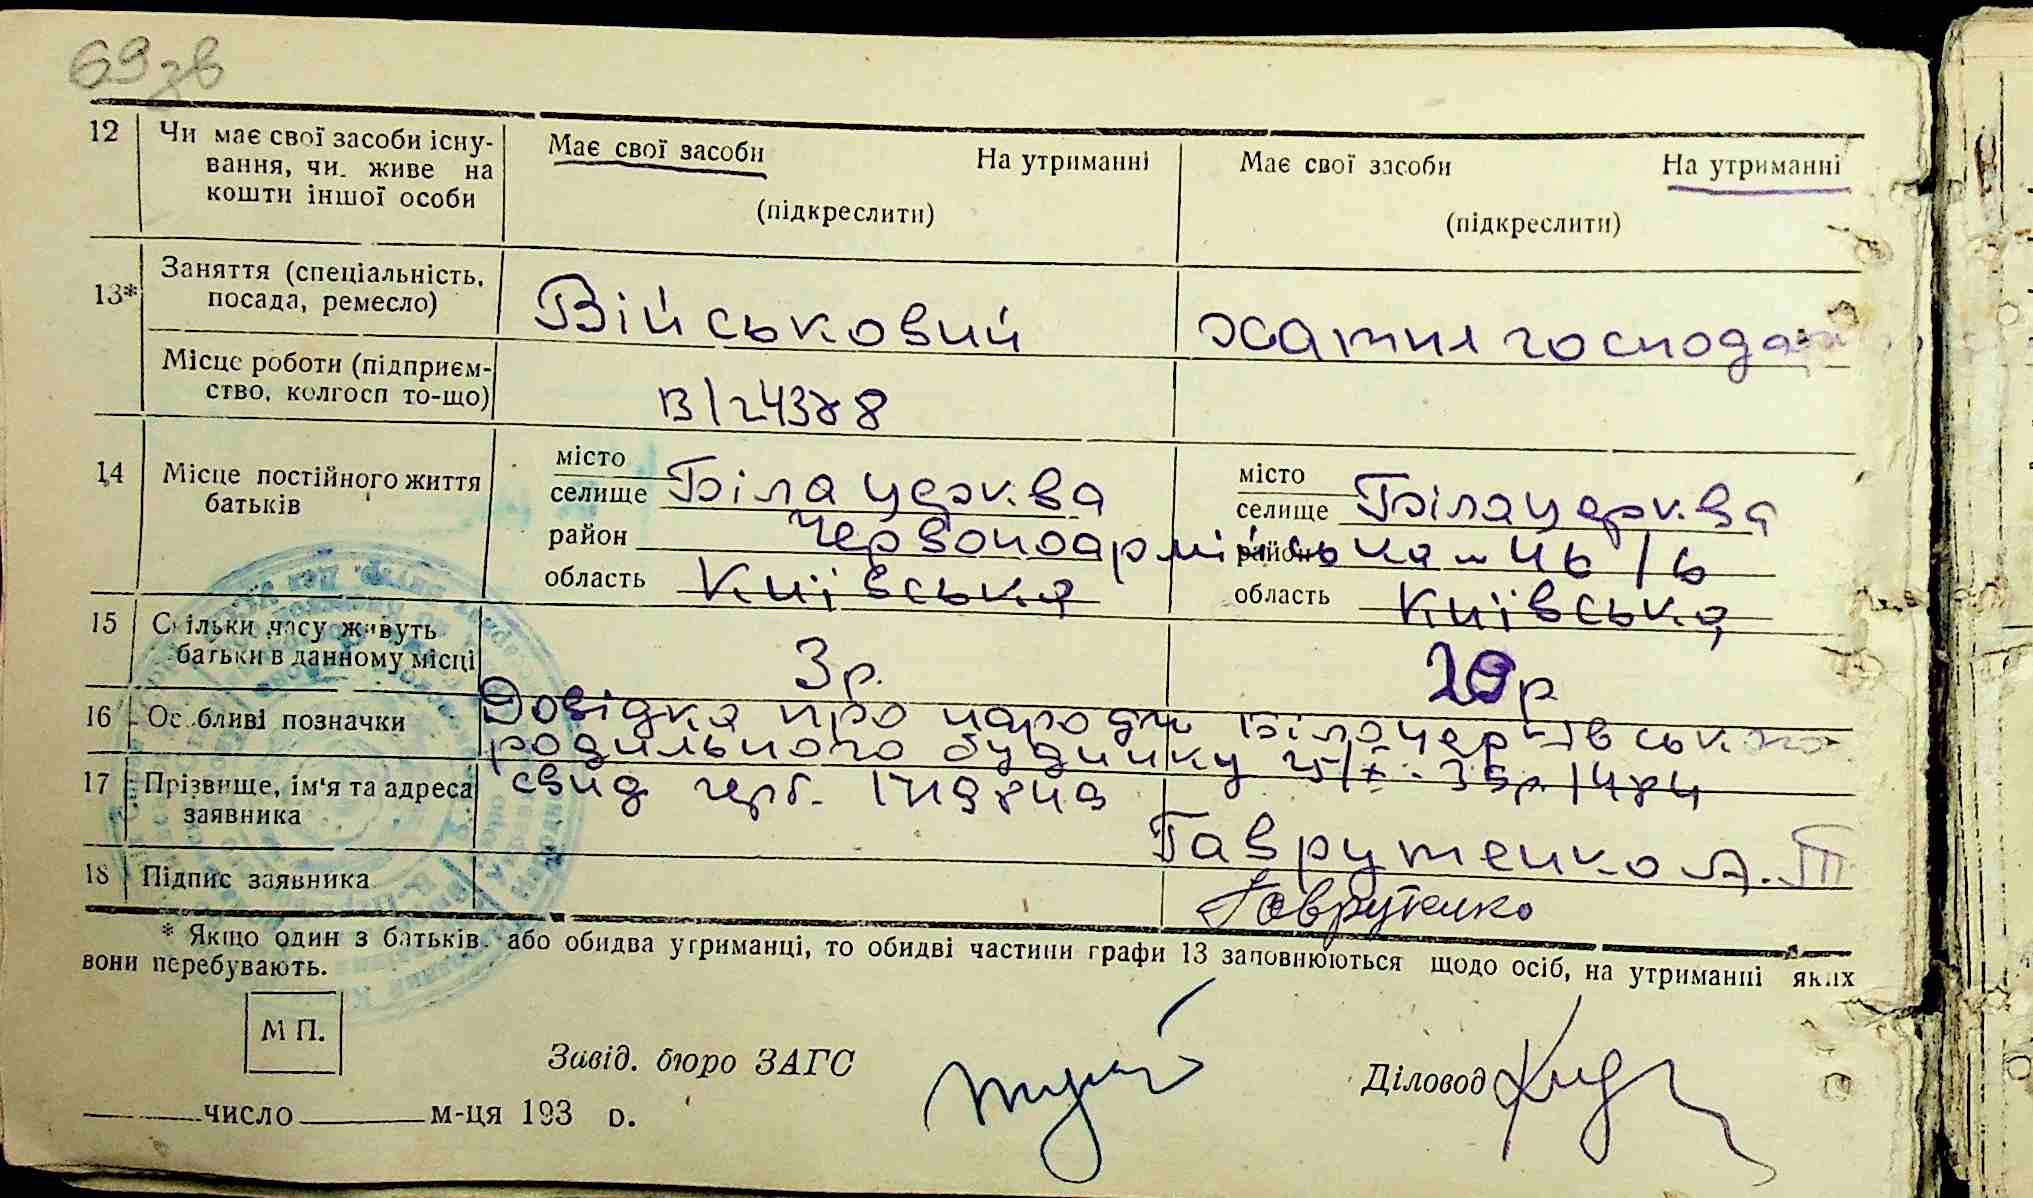 69зв
12 Чи має свої засоби існу- Має свої засоби На утриманні Має свої засоби На утриманні
вання, чи живе на
кошти іншої особи (підкреслити) (підкреслити)
13* Заняття (спеціальність,
посада, ремесло) Військовий хатня господар
Місце роботи (підприєм-
ство, колгосп то-що) В/24378
14 Місце постійного життя місто місто
батьків селище Біла церква селище Біла церква
район Червоноармійська район 46/6
область Київська область Київська
15 Скільки часу живуть
батьки в данному місці 3 р. р
16 Особливі позначки Довідка про народж Білоцерківського
родильного будинку
17 Прізвище, ім'я та адреса свид
заявника Гаврутенко А. Т
18 Підпис заявника Гаврутенко
* Якщо один з батьків, або обидва утриманці, то обидві частини графи 13 заповнюються щодо осіб, на утриманні яких
вони перебувають.
М П.
Завід. бюро ЗАГС Діловод
число м-ця 193 р.